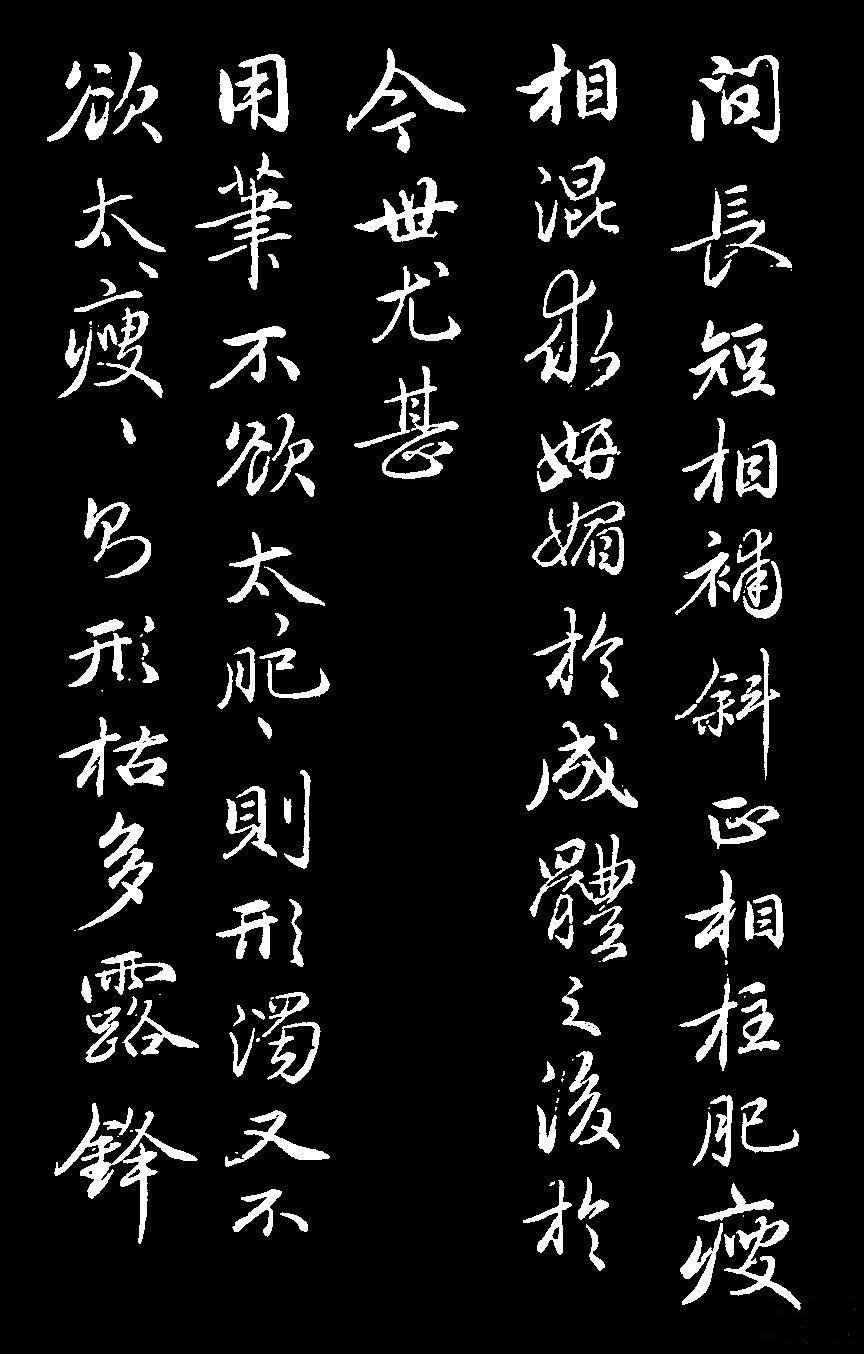 間長短相補斜正相柱肥瘦
相混求妍媚於成體之後於
今世尤甚
用筆不欲太肥、則形濁又不
欲太瘦、即形枯多露鋒